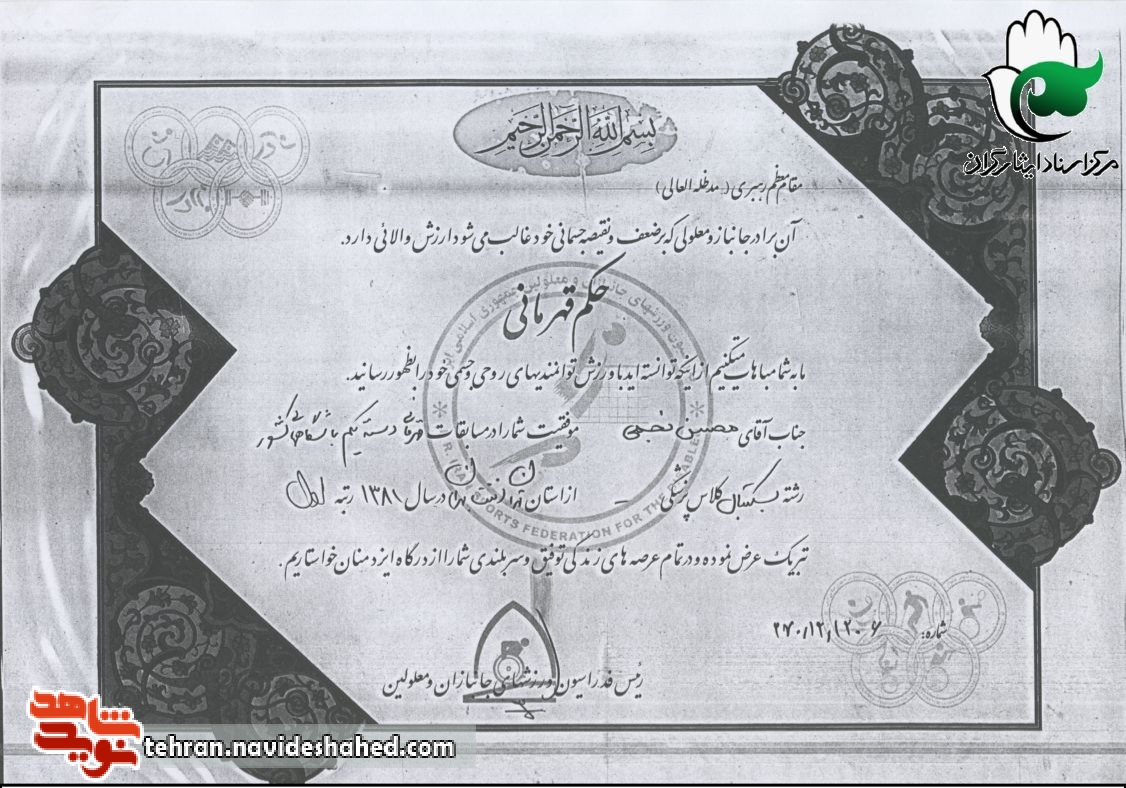 مرکز اسناد ایثارگران
بسم الله الرحمن الرحیم
مقام معظم رهبری (مدظله العالی)
آن برادر جانباز و معلولی که بر ضعف و نقیصه جسمانی خود غالب می شود ارزش والائی دارد.
حکم قهرمانی
ما به شما مباهات میکنیم از اینکه توانسته اید با ورزش توانمندیهای روحی و جسمی خود را بظهور رسانید.
جناب آقای محسن نجیمی موفقیت شما را در مسابقات قهرمانی دسته یکم باشگاهی کشور
رشته بسکتبال کلاس پزشکی – از استان تهران در سال ۱۳۸۱ رتبه اول
تبریک عرض نموده و در تمام عرصه های زندگی توفیق و سربلندی شما را از درگاه ایزد منان خواستاریم.
شماره:
رئیس فدراسیون ورزشهای جانبازان و معلولین
SPORTS FEDERATION FOR THE DISABLED
نوید شاهد
tehran.navideshahed.com